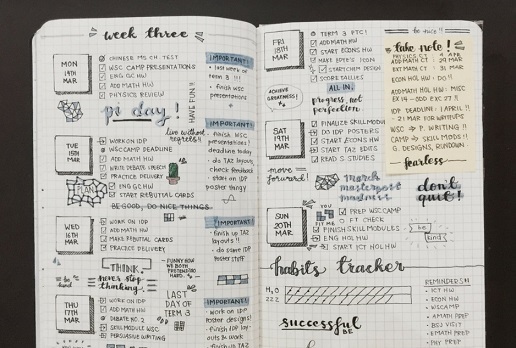 week three
MON
14TH
MAR
CHINESE MS CH. TEST
WSC CAMP PRESENTATIONS
ENG GC HW
ADD MATH HW
PHYSICS REVIEW
IMPORTANT!
last week of
term 3 !!!
finish WSC
presentations
pi day!
HAVE FUN !!
live without
regrets!!
TUE
15TH
MAR
WORK ON IDP
WSC CAMP DEADLINE
ADD MATH HW
WRITE DEBATE SPEECH
PRACTICE DELIVERY
PLAN
ENG GC HW
START REBUTTAL CARDS
BE GOOD, DO NICE THINGS
IMPORTANT!
finish WSC
presentations!
deadline today
do TAZ layouts,
check feedback
start on IDP
poster thingy
WED
16TH
MAR
WORK ON IDP
ADD MATH HW
MAKE REBUTTAL CARDS
PRACTICE DELIVERY
IMPORTANT!
finish up TAZ
layouts !!
do some IDP
poster stuff
THINK.
never stop
thinking.
FUNNY HOW
WE BOTH
PRETENDING
HARD.
THU
17TH
MAR
WORK ON IDP
ADD MATH HW
DEBATE NO.2
SKILL MODULE WSC
PERSUASIVE WRITING
LAST
DAY OF
TERM 3
IMPORTANT!
work on IDP
poster designs!
finish IDP lay-
outs & work
finish up TAZ
FRI
18TH
MAR
TERM 3 PTC!
ADD MATH HW
START ECONS HW
START CHEM DESIGN
SCORE TALLIES
ACHIEVE
GREATNESS!
ALL IN.
progress, not
perfection
be nice!!
take note!
PHYSICS CT 4 APR
ADD MATH CT 31 MAR
EXT MATH CT 31 MAR
ECON HOL HW: DO!!
ADD MATH HOL HW: MISC
EX 14 - ODD EXC 27 !!
IDP DEADLINE: 1 APRIL !!
21 MAR FOR WRITEUPS
WSC → P. WRITING !!
CAMP → SKILL MODS !!
G. DESIGNS, RUNDOWN
fearless
SAT
19TH
MAR
FINALIZE SKILL MODULES
DO IDP POSTERS
START ECONS HW
START TAZ EDITS
READ S STUDIES
move
forward!
march
masterpost
madness
don't
quit!
SUN
20TH
MAR
YOU
FIT ME
PREP WSC CAMP
FT CHECK
FINISH SKILL MODULES
ENG HOL HW
START ICT HOL HW
be
kind
habits tracker
H₂O
ZZZ
successful
BE
REMINDERS!!
ICT HW
ECON HW
WSC CAMP
A MATH PREP
BSJ VISIT
E MATH PREP
PHY PREP